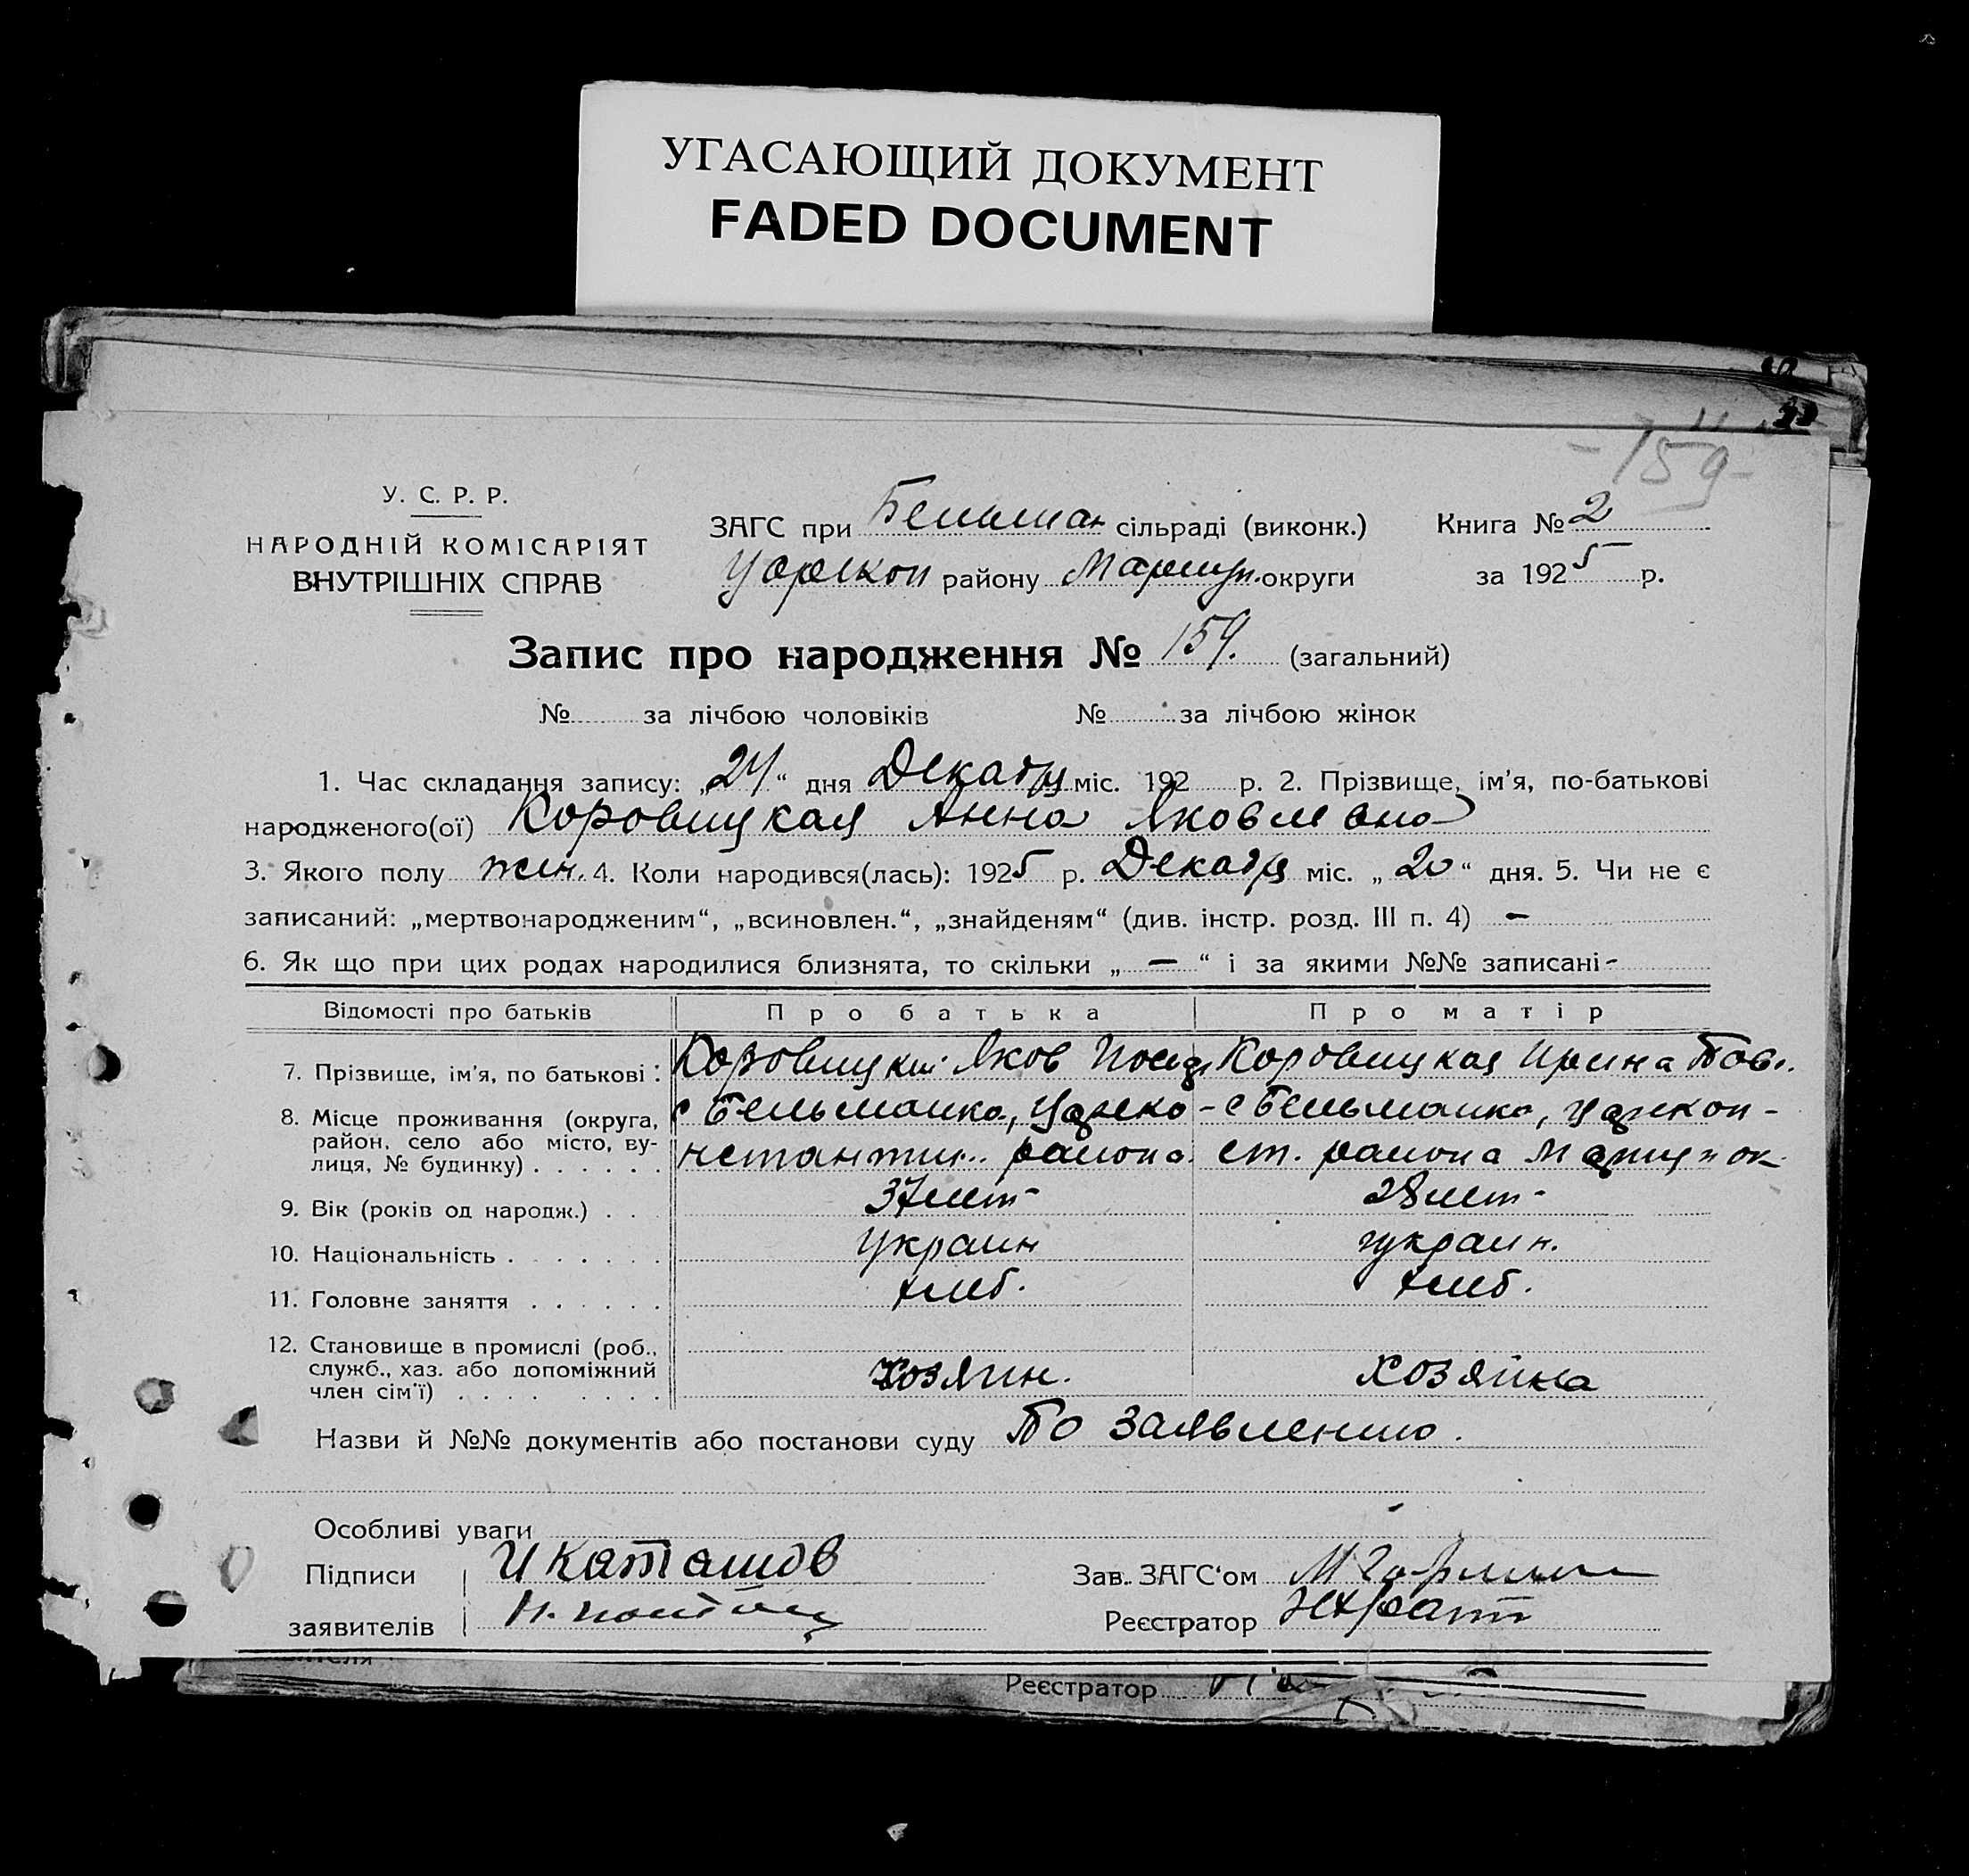 УГАСАЮЩИЙ ДОКУМЕНТ
FADED DOCUMENT
-159-
У. С. Р. Р.
НАРОДНІЙ КОМІСАРІЯТ
ВНУТРІШНІХ СПРАВ
ЗАГС при Бельман сільраді (виконк.) Книга № 2
Царекон району Мариуп. округи за 1925 р.
Запис про народження № 159. (загальний)
№ за лічбою чоловіків № за лічбою жінок
1. Час складання запису: „24“ дня Декабря міс. 192 р. 2. Прізвище, ім’я, по-батькові
народженого(ої) Коровицкая Анна Яковлевна
3. Якого полу жен. 4. Коли народився(лась): 1925 р. Декабря міс. „20“ дня. 5. Чи не є
записаний: „мертвонародженим“, „всиновлен.“, „знайденям“ (див. інстр. розд. III п. 4) —
6. Як що при цих родах народилися близнята, то скільки „—“ і за якими №№ записані -
Відомості про батьків Про батька Про матір
7. Прізвище, ім’я, по батькові: Коровицкий Яков Коровицкая Ирина Пав.
8. Місце проживання (округа, район, село або місто, вулиця, № будинку) с Бельманка, Царско- с Бельманка, Царикон-
нстантин. района. ст. района Мариуп ок
9. Вік (років од народж.) 37 лет- 28 лет-
10. Національність Украин украин.
11. Головне заняття хлеб. хлеб.
12. Становище в промислі (роб., служб., хаз. або допоміжний член сім’ї) хозяин. хозяйка
Назви й №№ документів або постанови суду По заявлению.
Особливі уваги
Підписи И Каташов Зав. ЗАГС‘ом М
заявителів Н. Реєстратор
Реєстратор